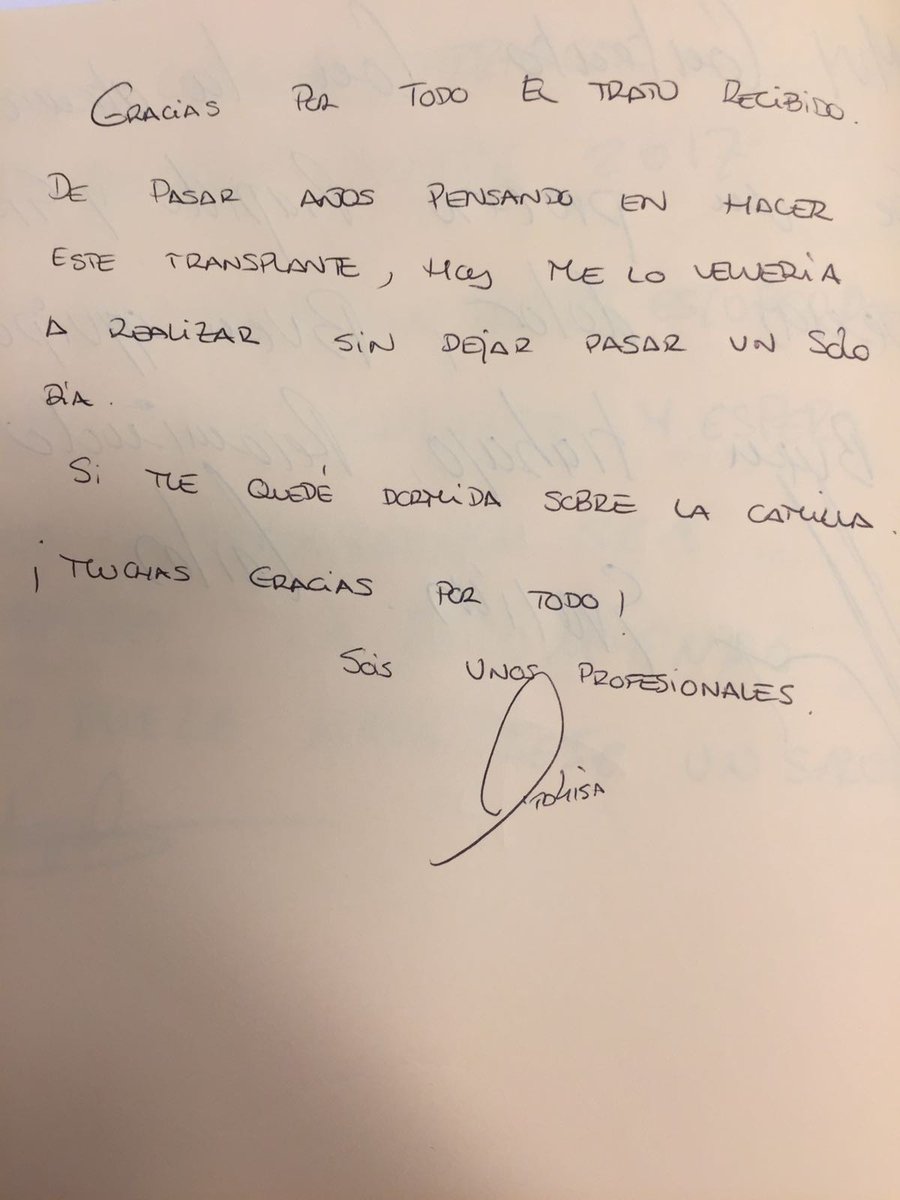 GRACIAS POR TODO EL TRATO RECIBIDO.
DE PASAR AÑOS PENSANDO EN HACER
ESTE TRANSPLANTE, HOY ME LO VOLVERÍA
A REALIZAR SIN DEJAR PASAR UN SÓLO
DÍA.
SI ME QUEDÉ DORMIDA SOBRE LA CAMILLA.
¡MUCHAS GRACIAS POR TODO!
SOIS UNOS PROFESIONALES.